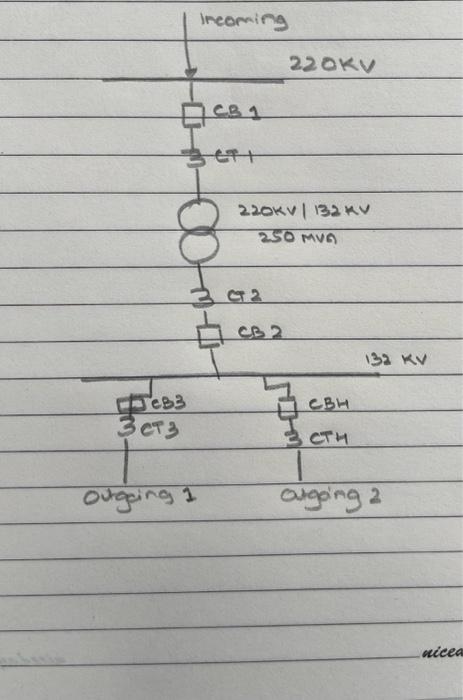 Incoming
220KV
CB1
CT1
220KV/132KV
250 MVA
CT2
CB2
132 KV
CB3
CB4
CT3
CT4
Outgoing 1
Outgoing 2